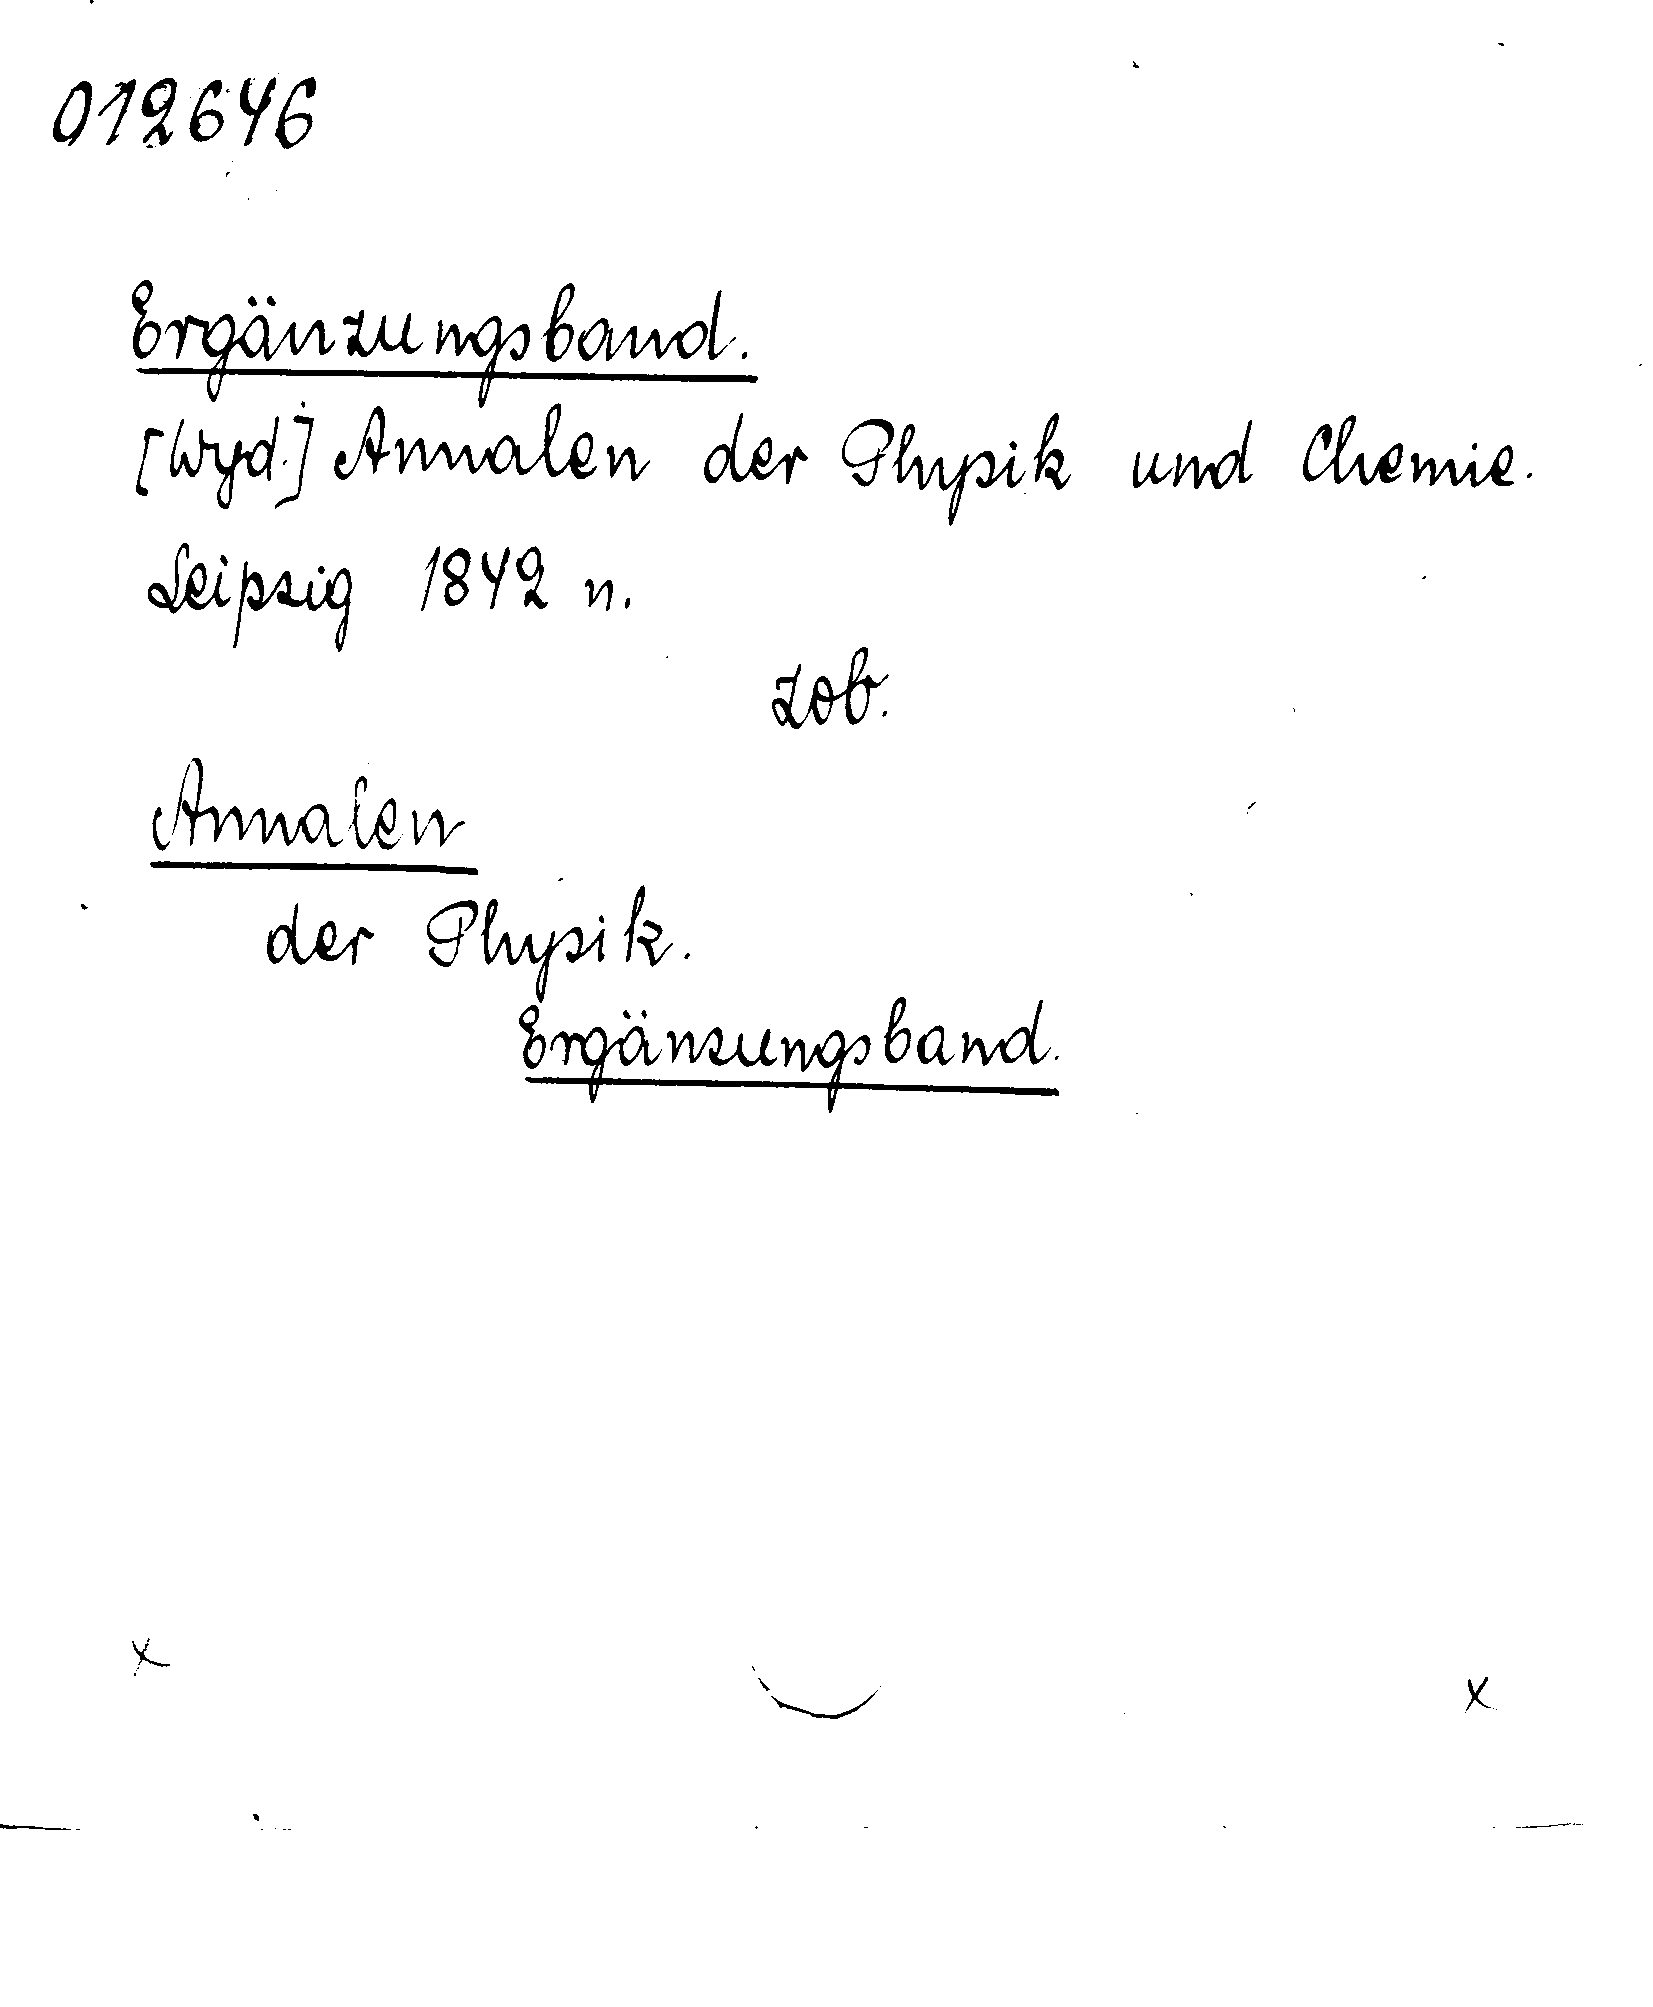 012646
Ergänzungsband.
[Wyd.] Annalen der Physik und Chemie.
Leipzig 1842 n.
zob.
Annalen
der Physik.
Ergänzungsband.